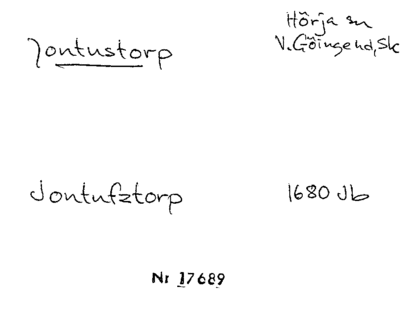 Jontustorp
Hörja sn
V.Göingehd, Sk
Jontufztorp
1680 Jb
Nr 17689